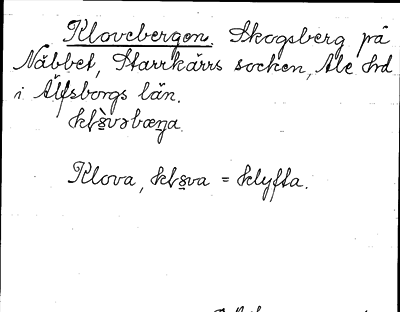 Klovebergen. Skogsberg på
Näbbet, Starrkärrs socken, Ale hrd
i Älfsborgs län.
Klova, = klyfta.